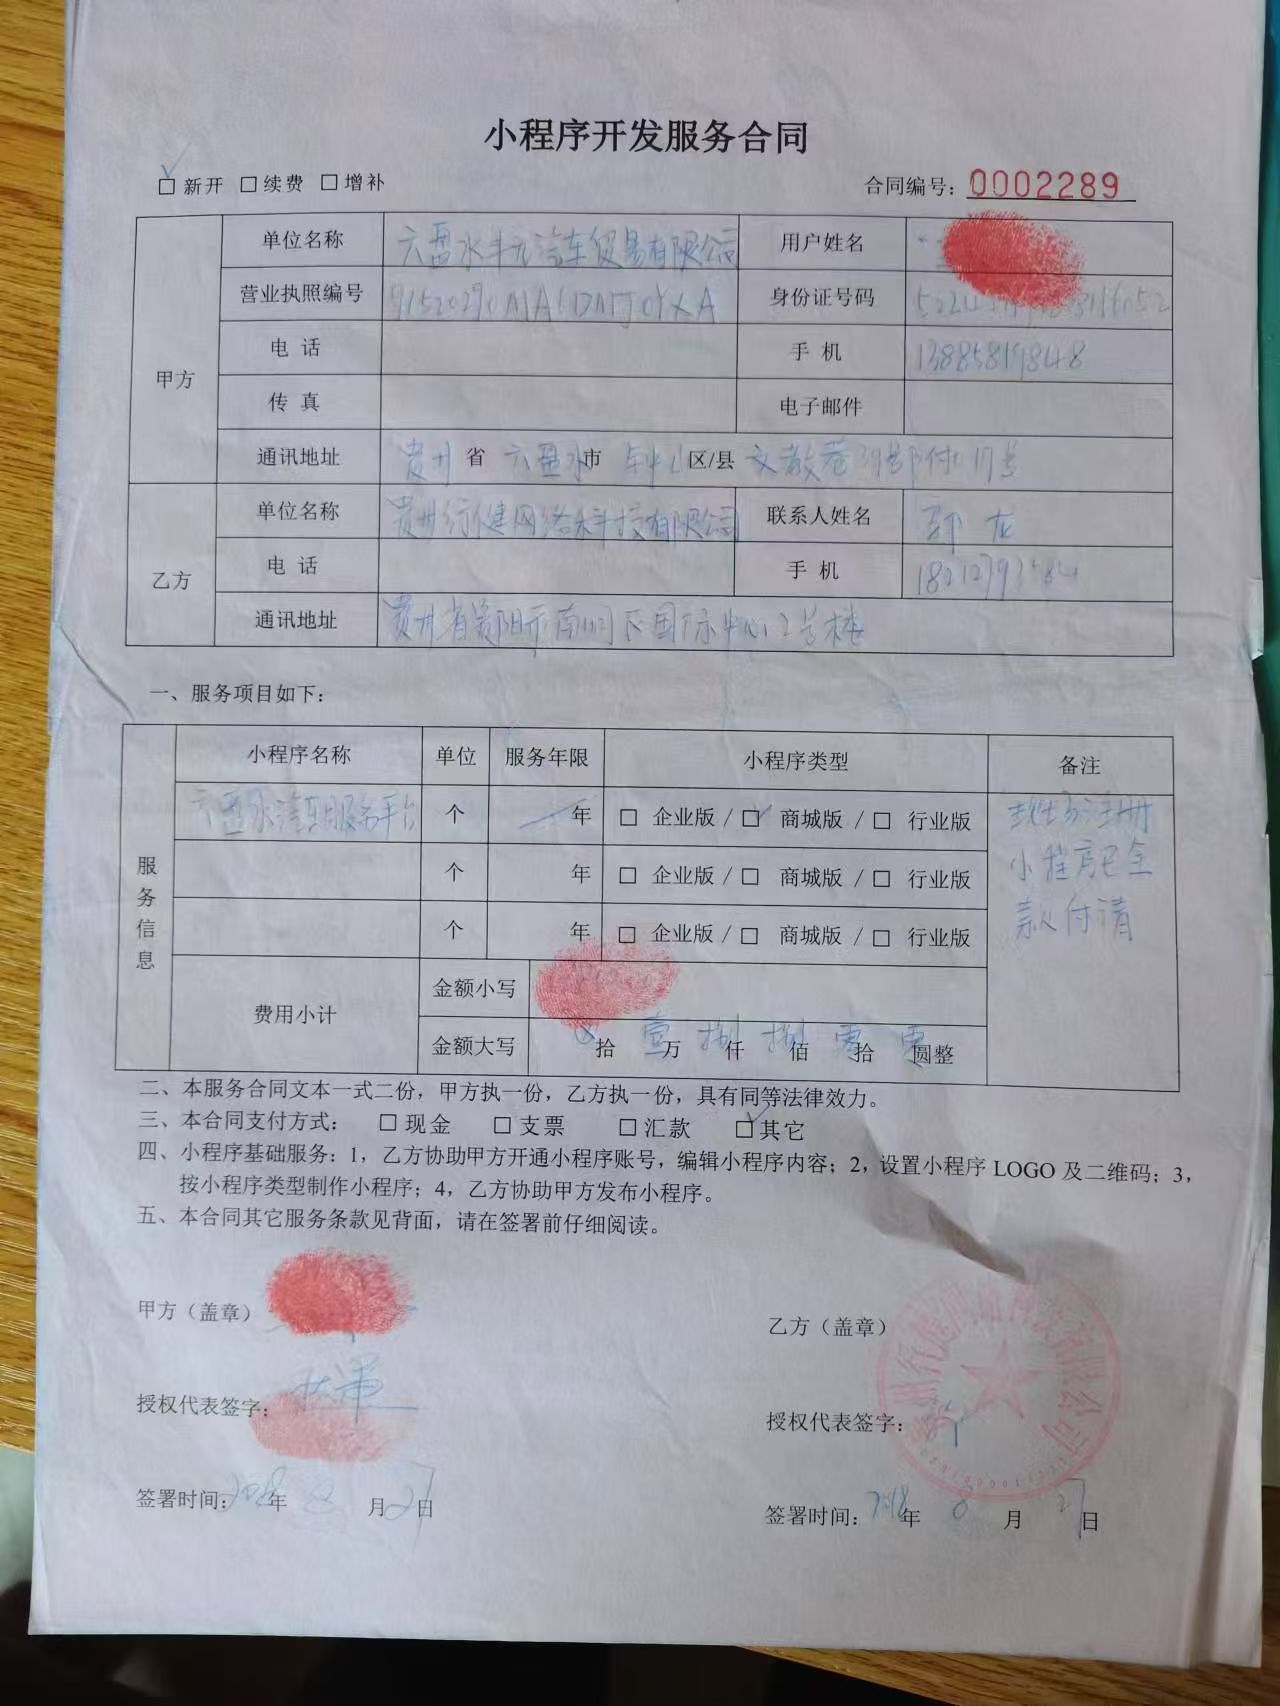 小程序开发服务合同
□ 新开 □ 续费 □ 增补 合同编号：0002289
甲方
单位名称 六盘水 汽车贸易有限公司 用户姓名
营业执照编号 身份证号码
电 话 手 机 13885819848
传 真 电子邮件
通讯地址 贵州 省 六盘水 市 钟山 区/县
乙方
单位名称 贵州行健网络科技有限公司 联系人姓名 郭龙
电 话 手 机
通讯地址 贵州省贵阳市南明区国际中心2号楼
一、服务项目如下：
服务信息
小程序名称 单位 服务年限 小程序类型 备注
六盘水汽车服务平台 个 一 年 □ 企业版 / □ 商城版 / □ 行业版
个 年 □ 企业版 / □ 商城版 / □ 行业版
个 年 □ 企业版 / □ 商城版 / □ 行业版
注册
小程序已全
款付清
费用小计 金额小写
金额大写 拾 壹 万 捌 仟 捌 佰 零 拾 零 圆整
二、本服务合同文本一式二份，甲方执一份，乙方执一份，具有同等法律效力。
三、本合同支付方式： □ 现金 □ 支票 □ 汇款 □ 其它
四、小程序基础服务：1，乙方协助甲方开通小程序账号，编辑小程序内容；2，设置小程序 LOGO 及二维码；3，
按小程序类型制作小程序；4，乙方协助甲方发布小程序。
五、本合同其它服务条款见背面，请在签署前仔细阅读。
甲方（盖章） 乙方（盖章）
授权代表签字： 授权代表签字：
签署时间：2018 年 8 月 27 日 签署时间：2018 年 8 月 27 日